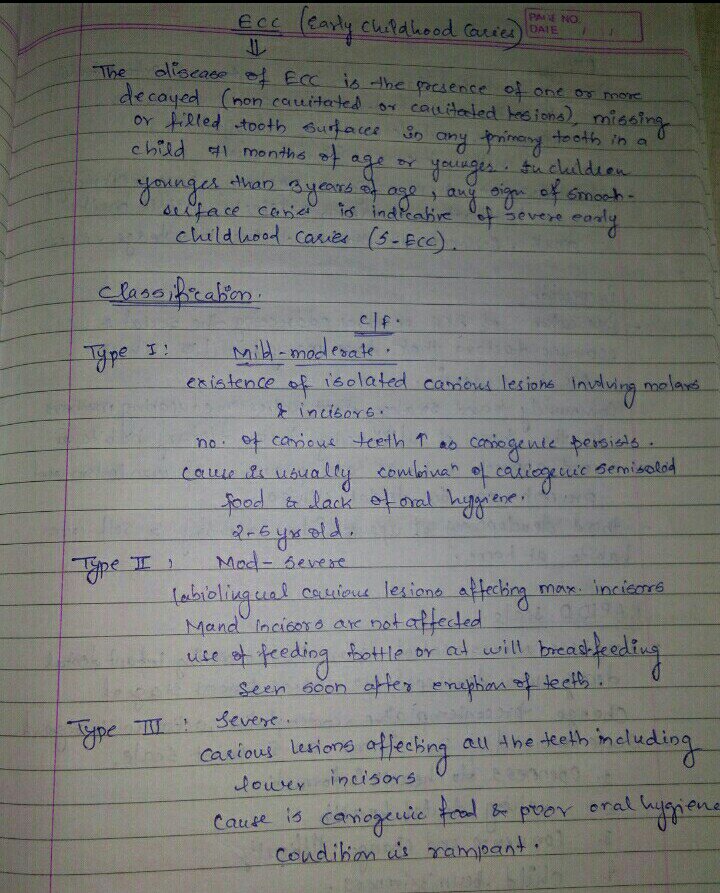 ECC (Early childhood Caries)
PAGE NO.
DATE / /
⇓
The disease of ECC is the presence of one or more
decayed (non cavitated or cavitated lesions), missing
or filled tooth surfaces in any primary tooth in a
child 71 months of age or younger. In children
younger than 3 years of age, any sign of smooth-
surface caries is indicative of severe early
childhood caries (S-ECC).
Classification.
c/f.
Type I: Mild-moderate.
existence of isolated carious lesions involving molars
& incisors.
no. of carious teeth ↑ as cariogenic persists.
cause is usually combinaⁿ of cariogenic semisolod
food & lack of oral hygiene.
2-5 yrs old.
Type II: Mod-severe
labiolingual carious lesions affecting max. incisors
Mand incisors are not affected
use of feeding bottle or at will breastfeeding
seen soon after eruption of teeth.
Type III: Severe.
carious lesions affecting all the teeth including
lower incisors
cause is cariogenic food & poor oral hygiene
condition is rampant.